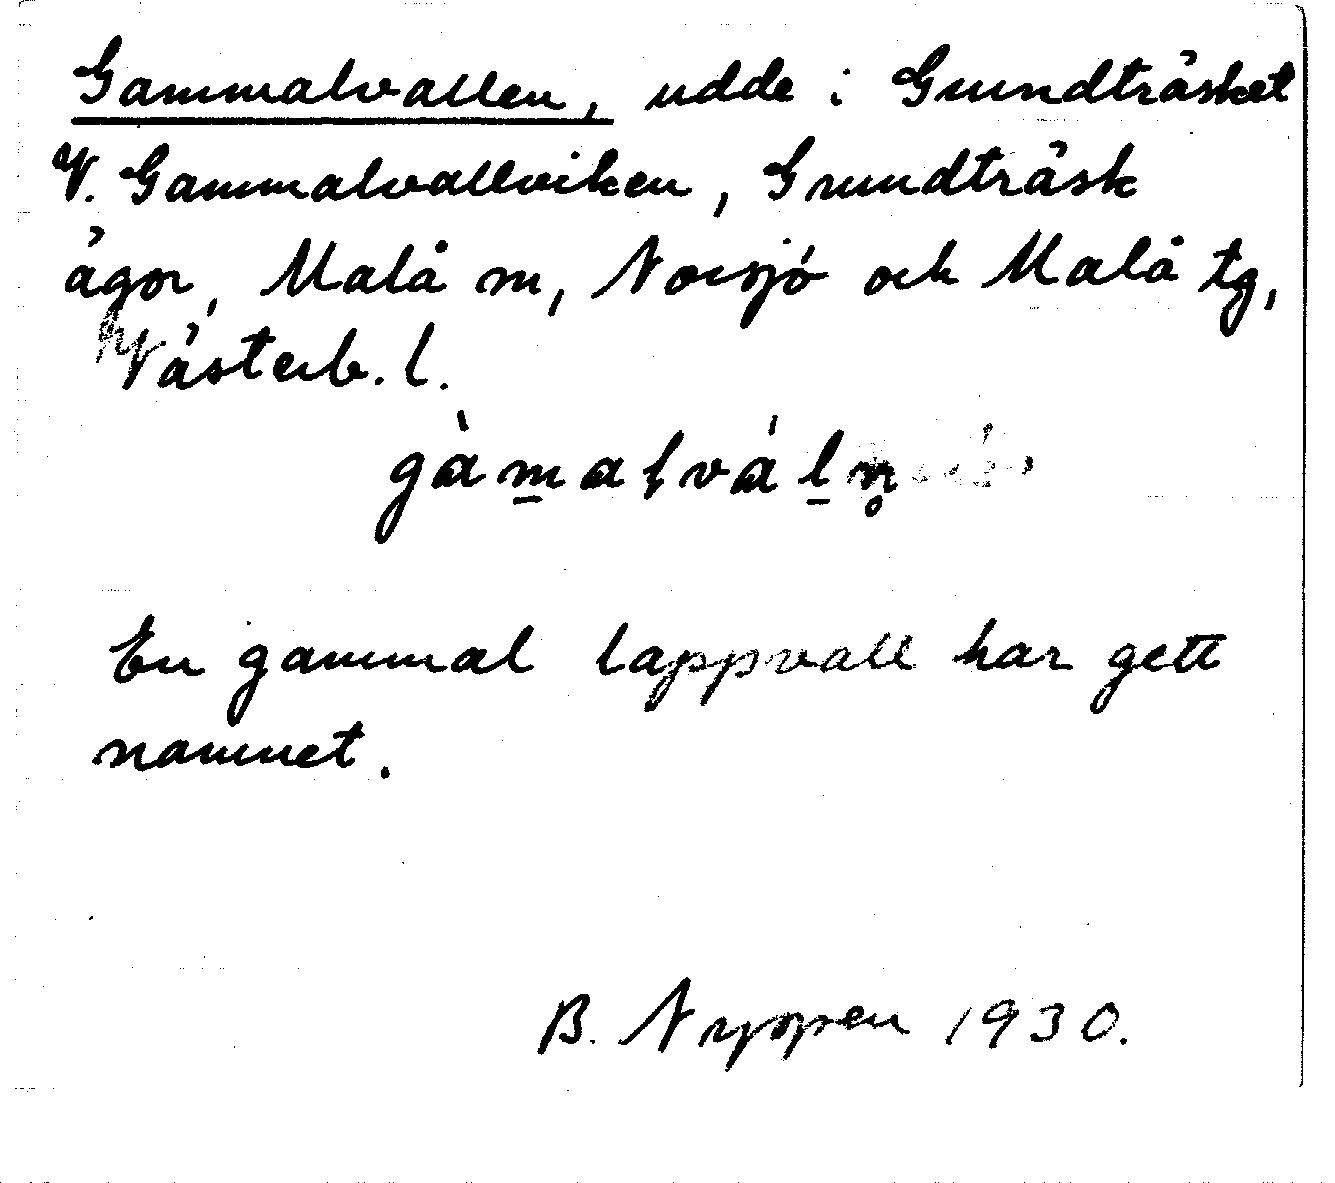 Gammalvallen, udde i Grundträsket
V. Gammalvallviken, Grundträsk
ägor, Malå sn, Norsjö och Malå tg,
Västerb. l.
gàmalváln̥
En gammal lappvall har gett
namnet.
B. Nyopen 1930.